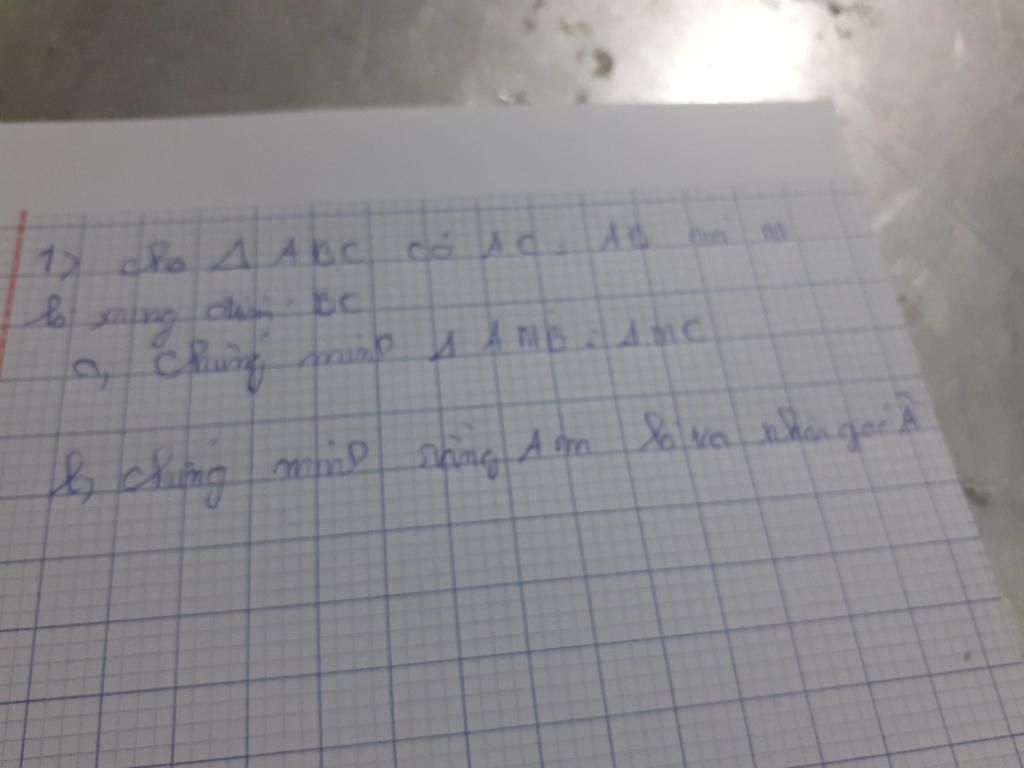 1) cho Δ ABC có AC = AB M
là trung điểm BC
a, Chứng minh Δ AMB = AMC
b, chứng minh rằng AM là tia phân góc Â